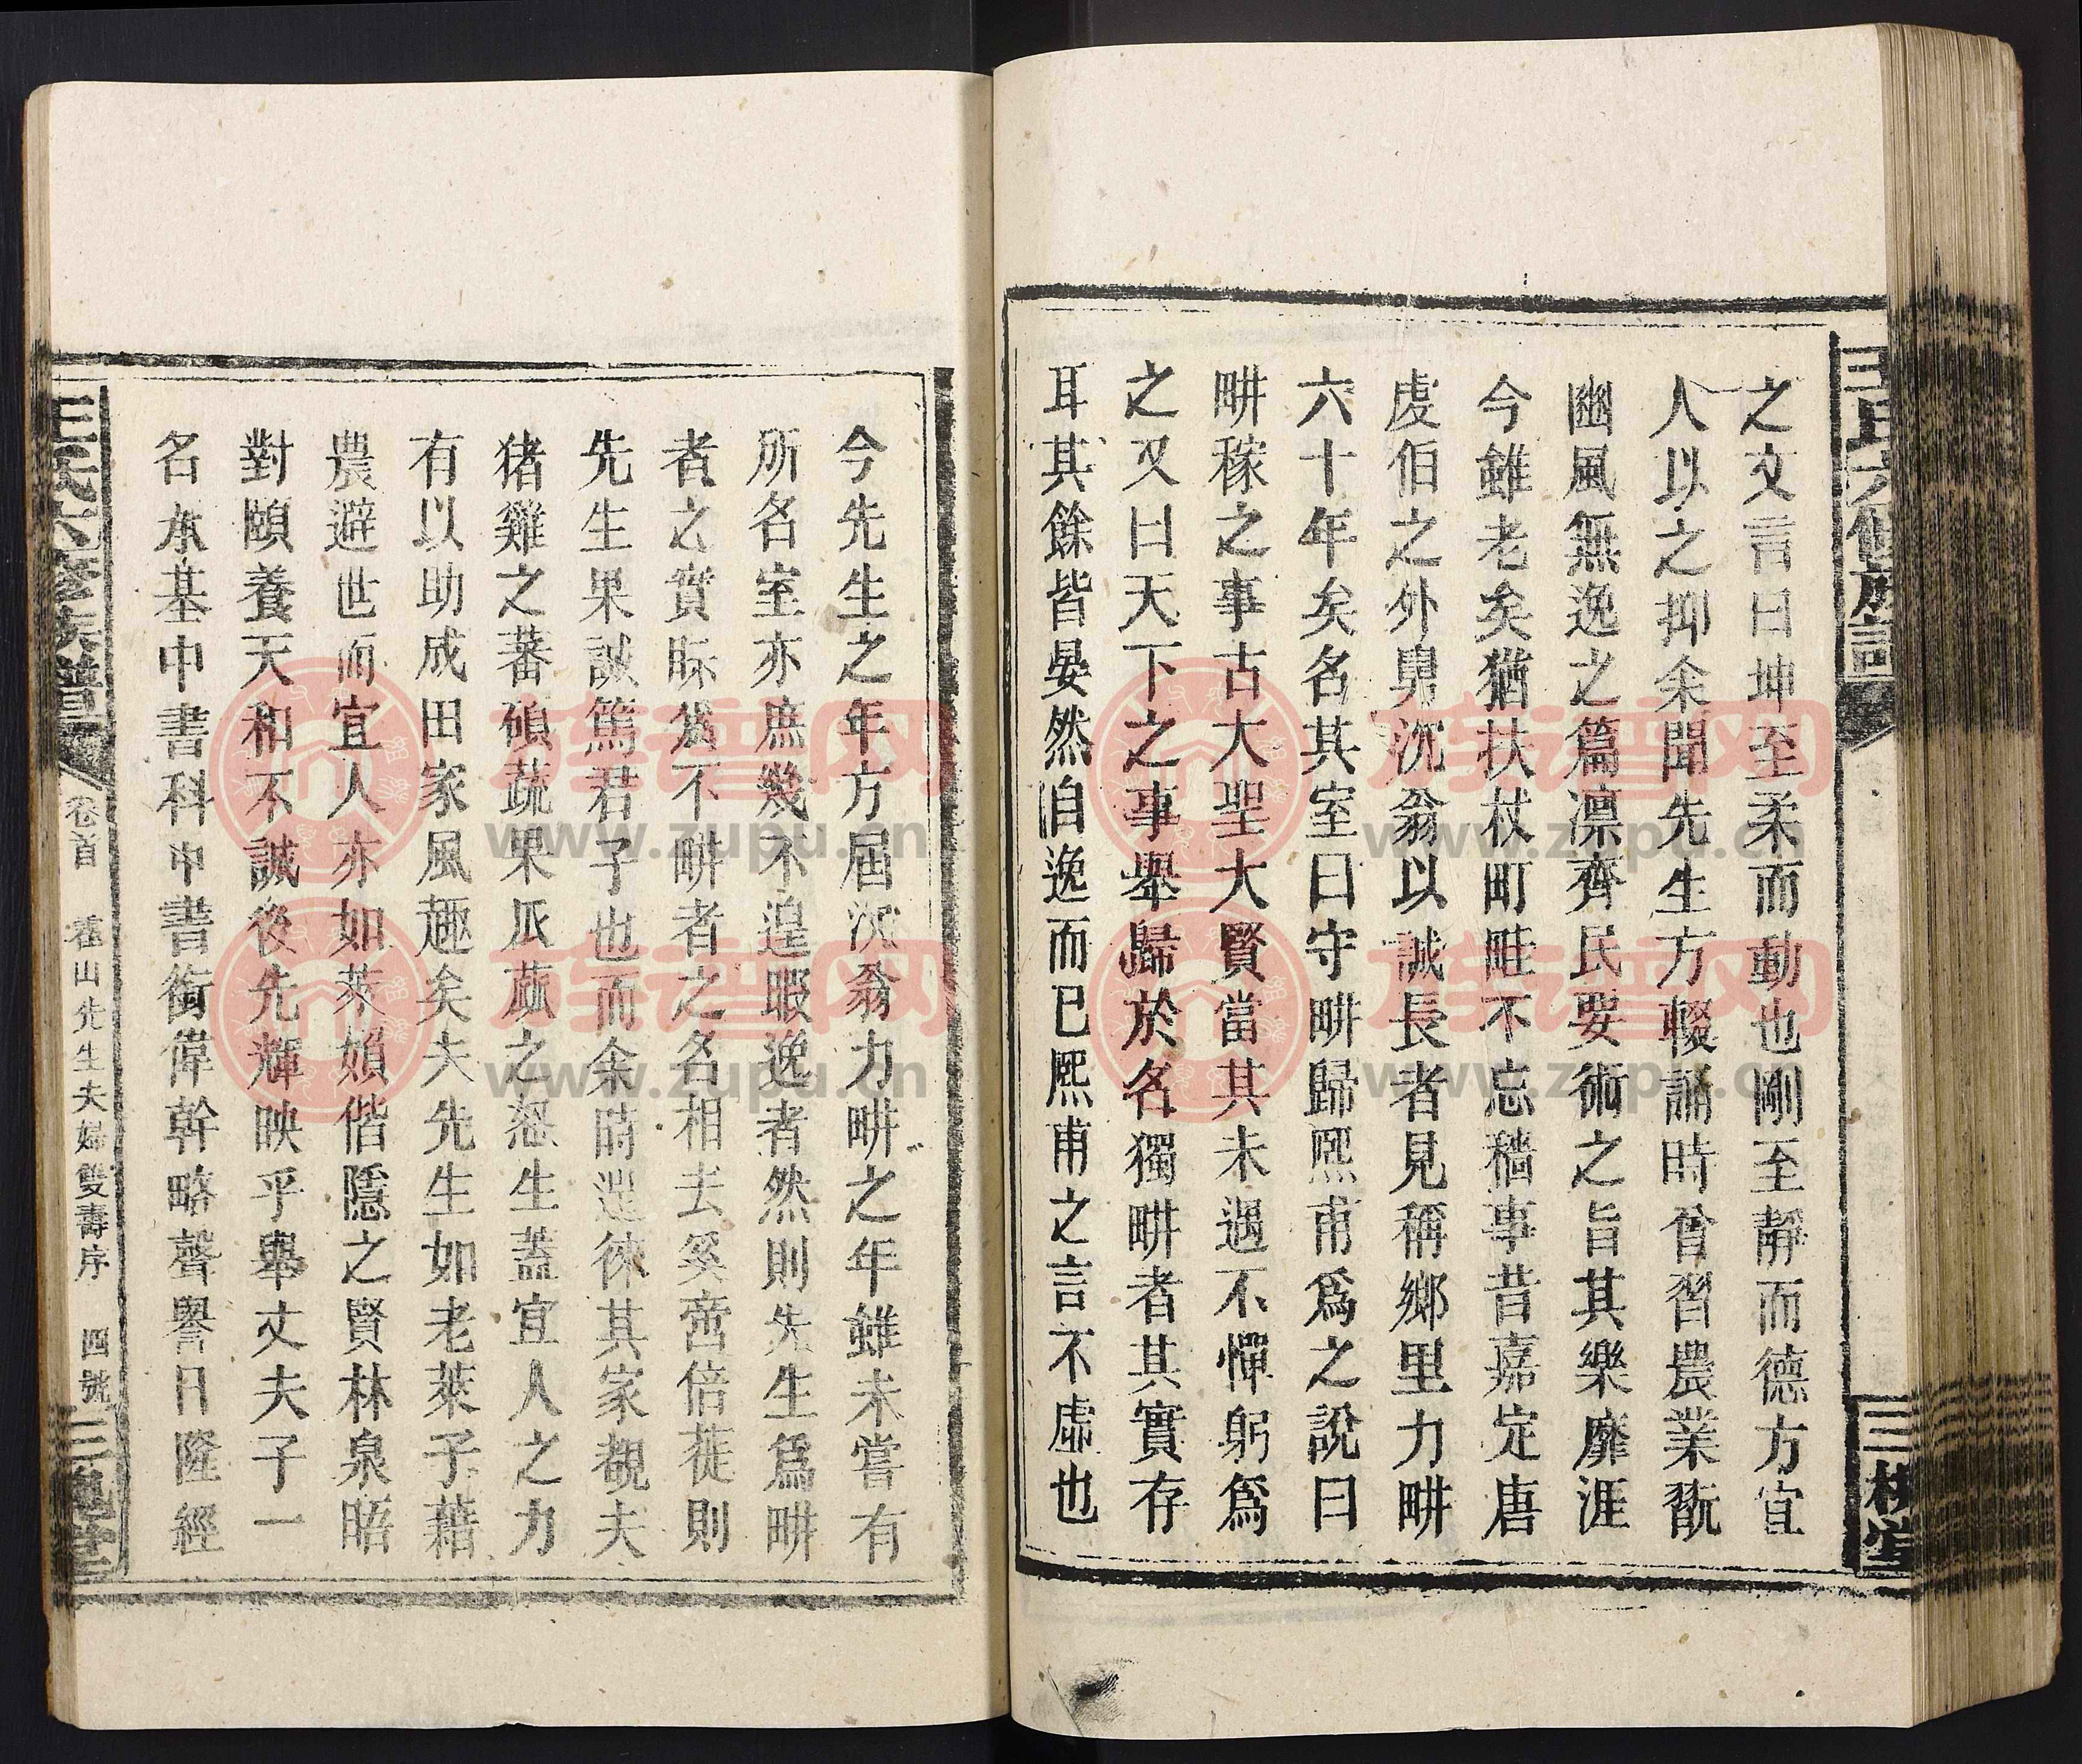 王氏六修族譜
三槐堂
之文言曰坤至柔而動也剛至靜而德方宜
人以之抑余聞先生方輟誦時曾習農業翫
豳風無逸之篇凛齊民要術之旨其樂靡涯
今雖老矣猶扶杖町畦不忘穡事昔嘉定唐
虔伯之外舅沉翁以誠長者見稱鄉里力畊
六十年矣名其室曰守畊歸熙甫爲之說曰
畊稼之事古大聖大賢當其未遇不憚躬爲
之又曰天下之事舉歸於名獨畊者其實存
耳其餘皆晏然自逸而已熙甫之言不虛也
今先生之年方屆沉翁力畊之年雖未嘗有
所名室亦庶幾不遑暇逸者然則先生爲畊
者之實際爲不畊者之名相去奚啻倍蓰則
先生果誠篤君子也而余時造徠其家覩夫
猪雞之蕃碩蔬果瓜蓏之怒生蓋宜人之力
有以助成田家風趣矣夫先生如老萊子藉
農避世而宜人亦如萊嬪偕隱之賢林泉晤
對頤養天和不誠後先輝映乎舉丈夫子一
名本基中書科中書銜偉幹略聲譽日隆經
王氏六修族譜
卷首
崔山先生夫婦雙壽序
四號
三槐堂
族谱网
www.zupu.cn
族谱网
www.zupu.cn
族谱网
www.zupu.cn
族谱网
www.zupu.cn